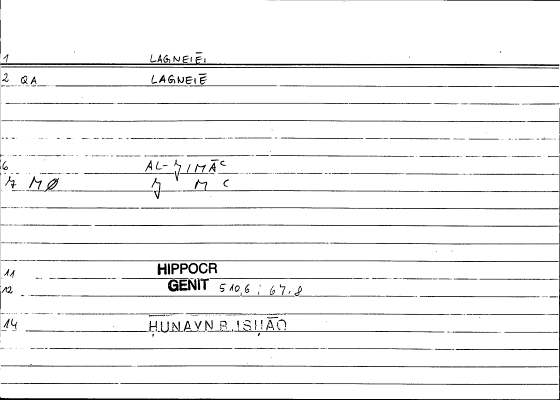 1 LAGNEIĒI
2 QA LAGNEIĒ
6 AL-ŊIMĀC
7 MØ M C
11 HIPPOCR
12 GENIT 510,6 ; 67.8
14 ḤUNAYN B. ISḤĀQ